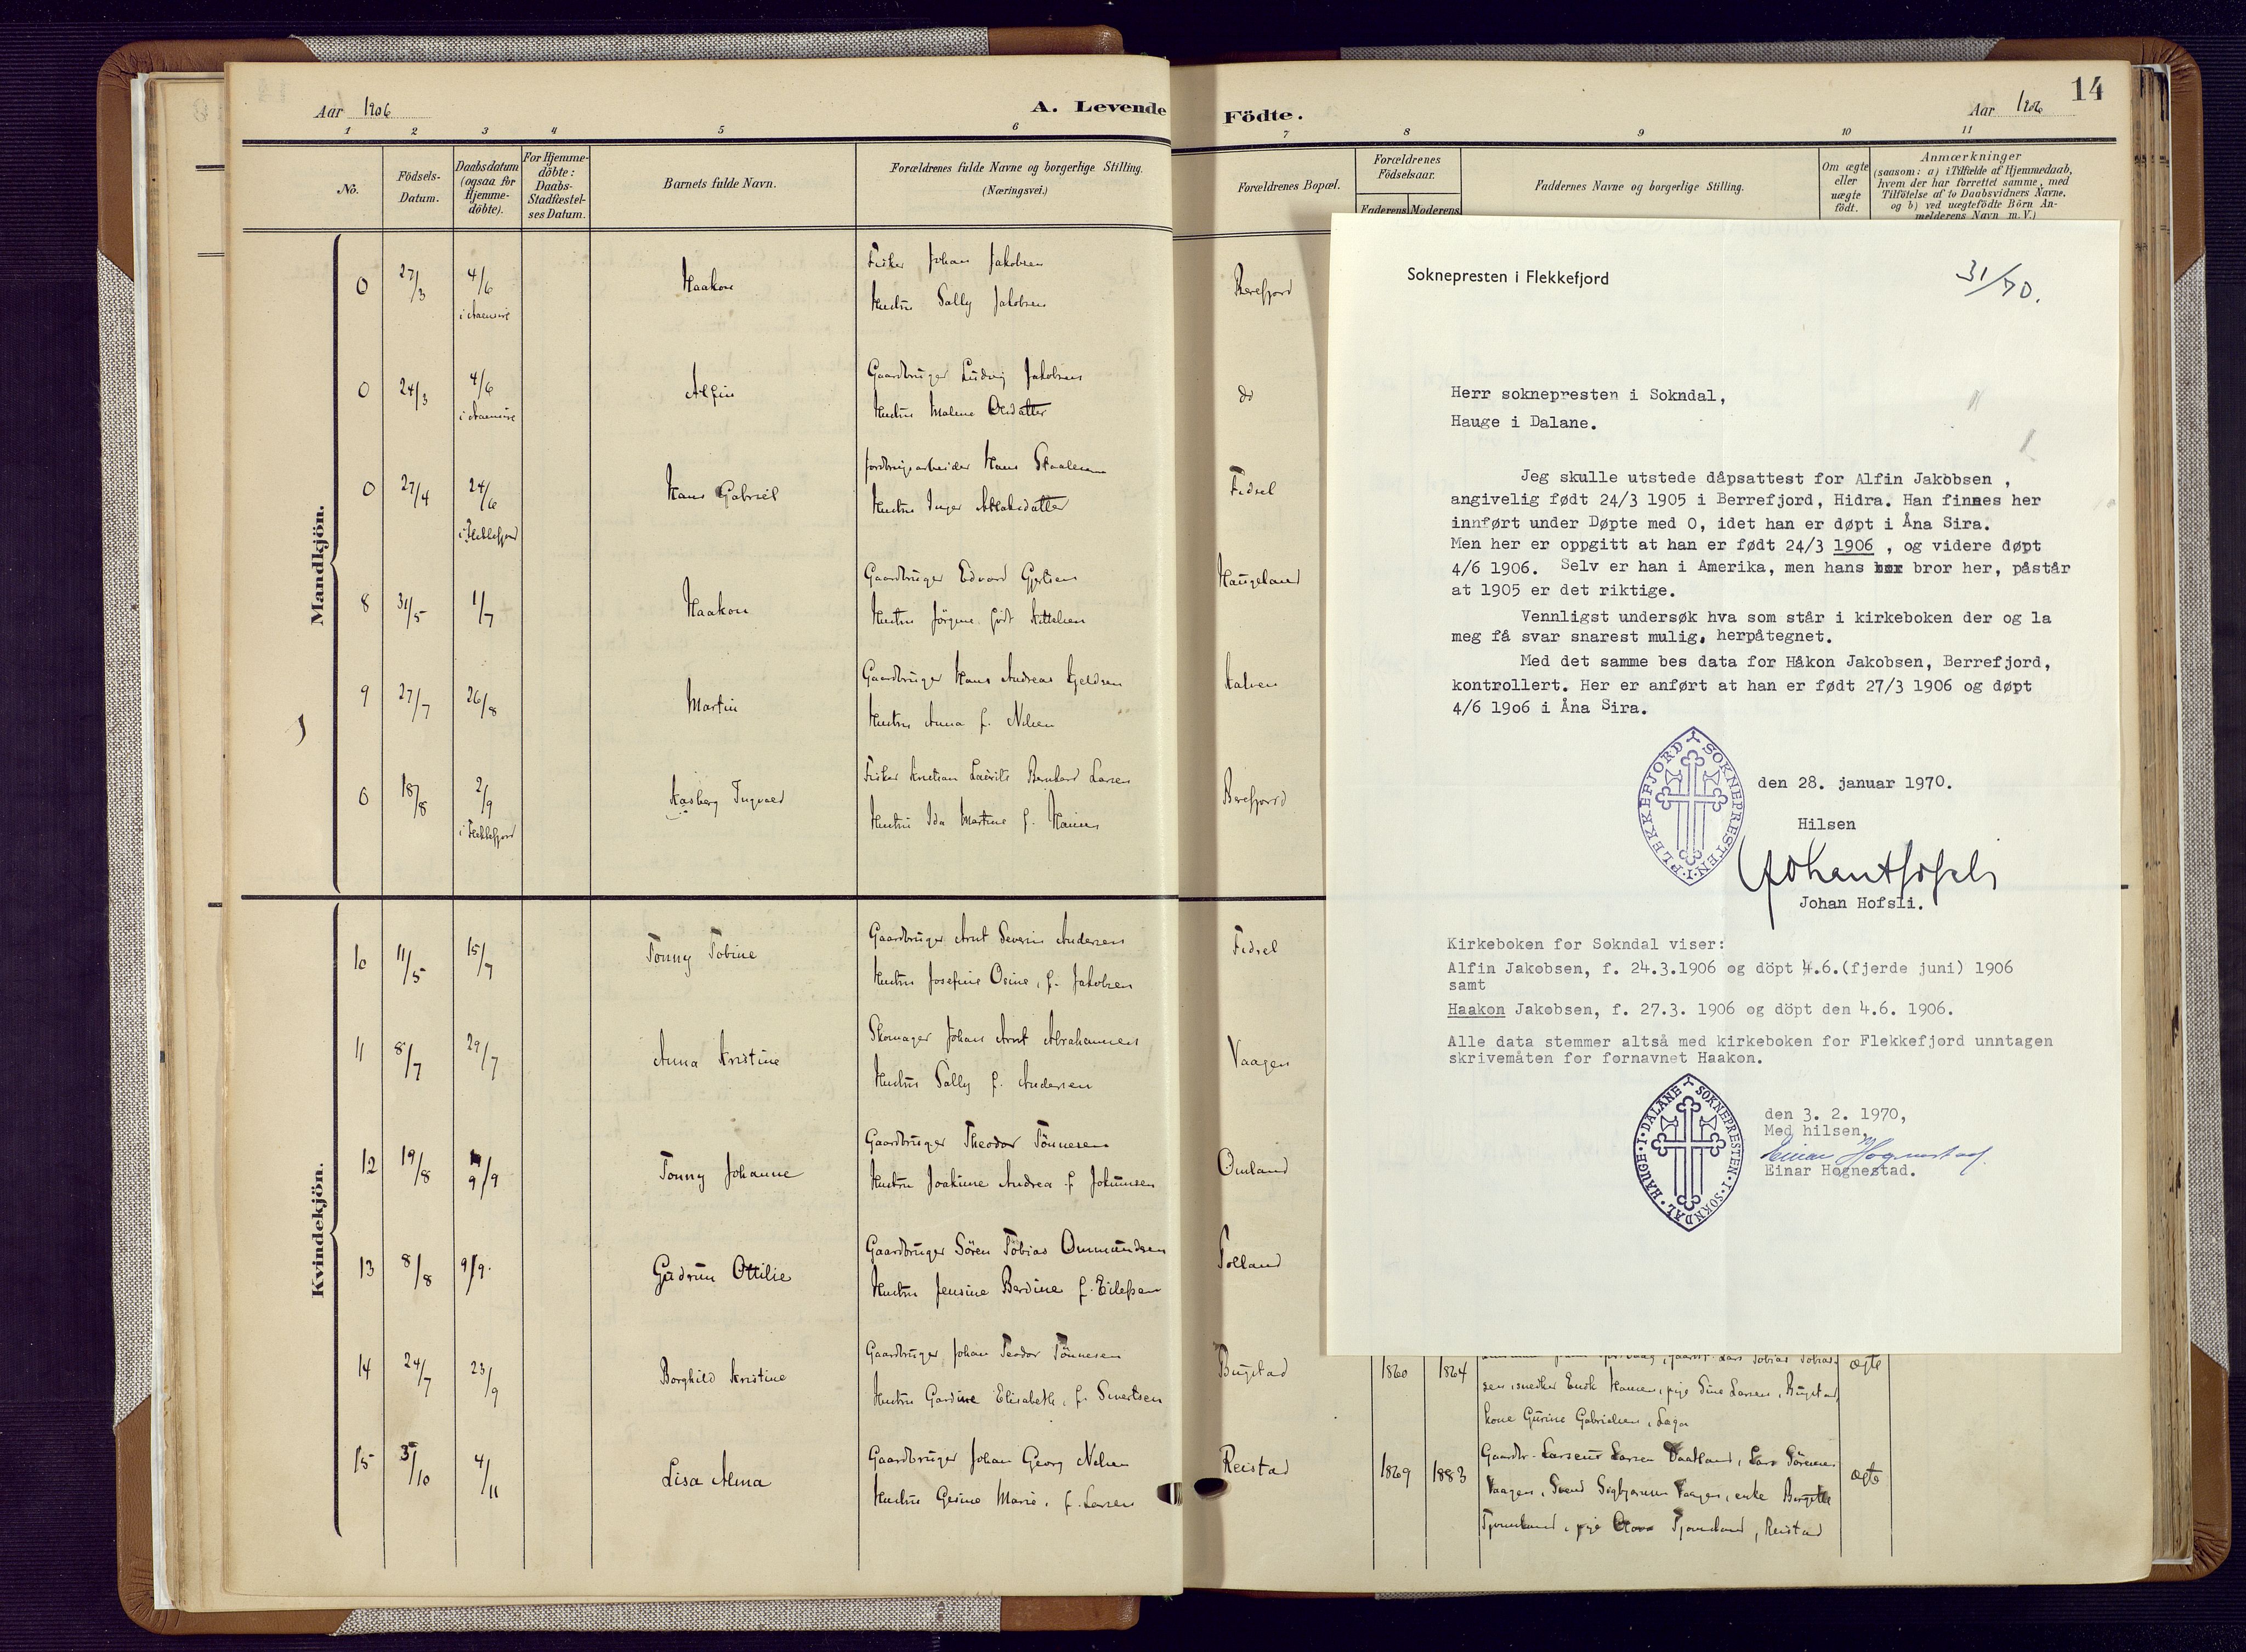 Aar 1906
A. Levende
1 2 3 4 5 6
No.
Födsels-Datum.
Daabsdatum (ogsaa for Hjemme-döbte).
For Hjemme-döbte: Daabs-Stadfæstel-ses Datum.
Barnets fulde Navn.
Forældrenes fulde Navne og borgerlige Stilling.
(Næringsvei.)
Mandkjön.
0 27/3 4/6 Haakon Fisker Johan Jakobsen
Hustru Sally Jakobsen
0 24/3 4/6 Alfin Gaardbruger Ludvig Jakobsen
Hustru Malene Olsdatter
0 27/4 24/6 Hans Gabriel Jordbrugsarbeider Hans
i Flekkefjord Hustru Inger Aslaksdatter
8 31/5 1/7 Haakon Gaardbruger Edvard Gjertsen
Hustru Jörgine födt Kittelsen
9 27/7 26/8 Martin Gaardbruger Hans Andreas Kjeldsen
Hustru Anna f. Nilsen
0 18/8 2/9 Aasberg Ingvald Fisker Kristian Laurits Bernhard Larsen
i Flekkefjord Hustru Ida Martine f. Hansen
Kvindekjön.
10 11/5 15/7 Tonny Tobine Gaardbruger Arnt Severin Andersen
Hustru Josefine Osine, f. Jakobsen
11 8/7 29/7 Anna Kristine Skomager Johan Arnt Abrahamsen
Hustru Sally f. Andersen
12 19/8 9/9 Tonny Johanne Gaardbruger Theodor Tönnesen
Hustru Joakime Andrea f.
13 8/8 9/9. Gudrun Ottilie Gaardbruger Sören Tobias Ommundsen
Hustru Jensine Berdine f. Eilefsen
14 24/7 23/9 Borghild Kristine Gaardbruger Johan Teodor Tönnesen
Hustru Gardine Elisabeth, f. Sivertsen
15 3/10 4/11 Lisa Alma Gaardbruger Johan Georg Nilsen
Hustru Gesine Marie, f. Larsen
Födte.
Aar 1906
14
7 8 9 10 11
Forældrenes Bopæl.
Forældrenes Födselsaar.
Faderens Moderens
Faddernes Navne og borgerlige Stilling.
Om ægte eller uægte födt.
Anmærkninger
(saasom: a) i Tilfælde af Hjemmedaab,
hvem der har forrettet samme, med
Tilföielse af to Daabsvidners Navne,
og b) ved uægtefödte Börn An-
melderens Navn m. V.)
Berefjord
do
Fidsel
Haugeland
Kalven
Berefjord
Fidsel
Vaagen
Omland
Tolland
Bugstad 1860 1864 ægte
sen, snedker Enok Hansen, pige Sine Larsen, Bugstad,
kone Gurine Gabrielsen, Laga
Reistad 1869 1883 Gaardbr. Larsen, Lars Sörensen ægte
Vaagen, Svend Sigbjørnsen Vaagen, enke
Tjomsland, pige Tjomsland, Reistad
Soknepresten i Flekkefjord
31/70.
Herr soknepresten i Sokndal,
Hauge i Dalane.
Jeg skulle utstede dåpsattest for Alfin Jakobsen ,
angivelig født 24/3 1905 i Berrefjord, Hidra. Han finnes her
innført under Døpte med 0, idet han er døpt i Åna Sira.
Men her er oppgitt at han er født 24/3 1906 , og videre døpt
4/6 1906. Selv er han i Amerika, men hans bror her, påstår
at 1905 er det riktige.
Vennligst undersøk hva som står i kirkeboken der og la
meg få svar snarest mulig, herpåtegnet.
Med det samme bes data for Håkon Jakobsen, Berrefjord,
kontrollert. Her er anført at han er født 27/3 1906 og døpt
4/6 19o6 i Åna Sira.
SOKNEPRESTEN·I·FLEKKEFJORD
den 28. januar 1970.
Hilsen
Johan Hofsli
Johan Hofsli.
Kirkeboken for Sokndal viser:
Alfin Jakobsen, f. 24.3.1906 og döpt 4.6.(fjerde juni) 1906
samt
Haakon Jakobsen, f. 27.3. 1906 og döpt den 4.6. 1906.
Alle data stemmer altså med kirkeboken for Flekkefjord unntagen
skrivemåten for fornavnet Haakon.
SOKNEPRESTEN·I·SOKNDAL·HAUGE·I·DALANE
den 3. 2. 1970,
Med hilsen,
Einar Høgnestad.
Einar Høgnestad.